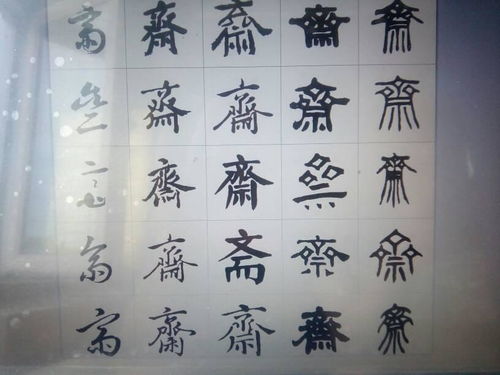 齋 齋 齋 齋 齋
齋 齋 齋 齋 齋
齋 齋 齋 齋 齋
齋 齋 斋 齋 齋
齋 齋 齋 齋 齋